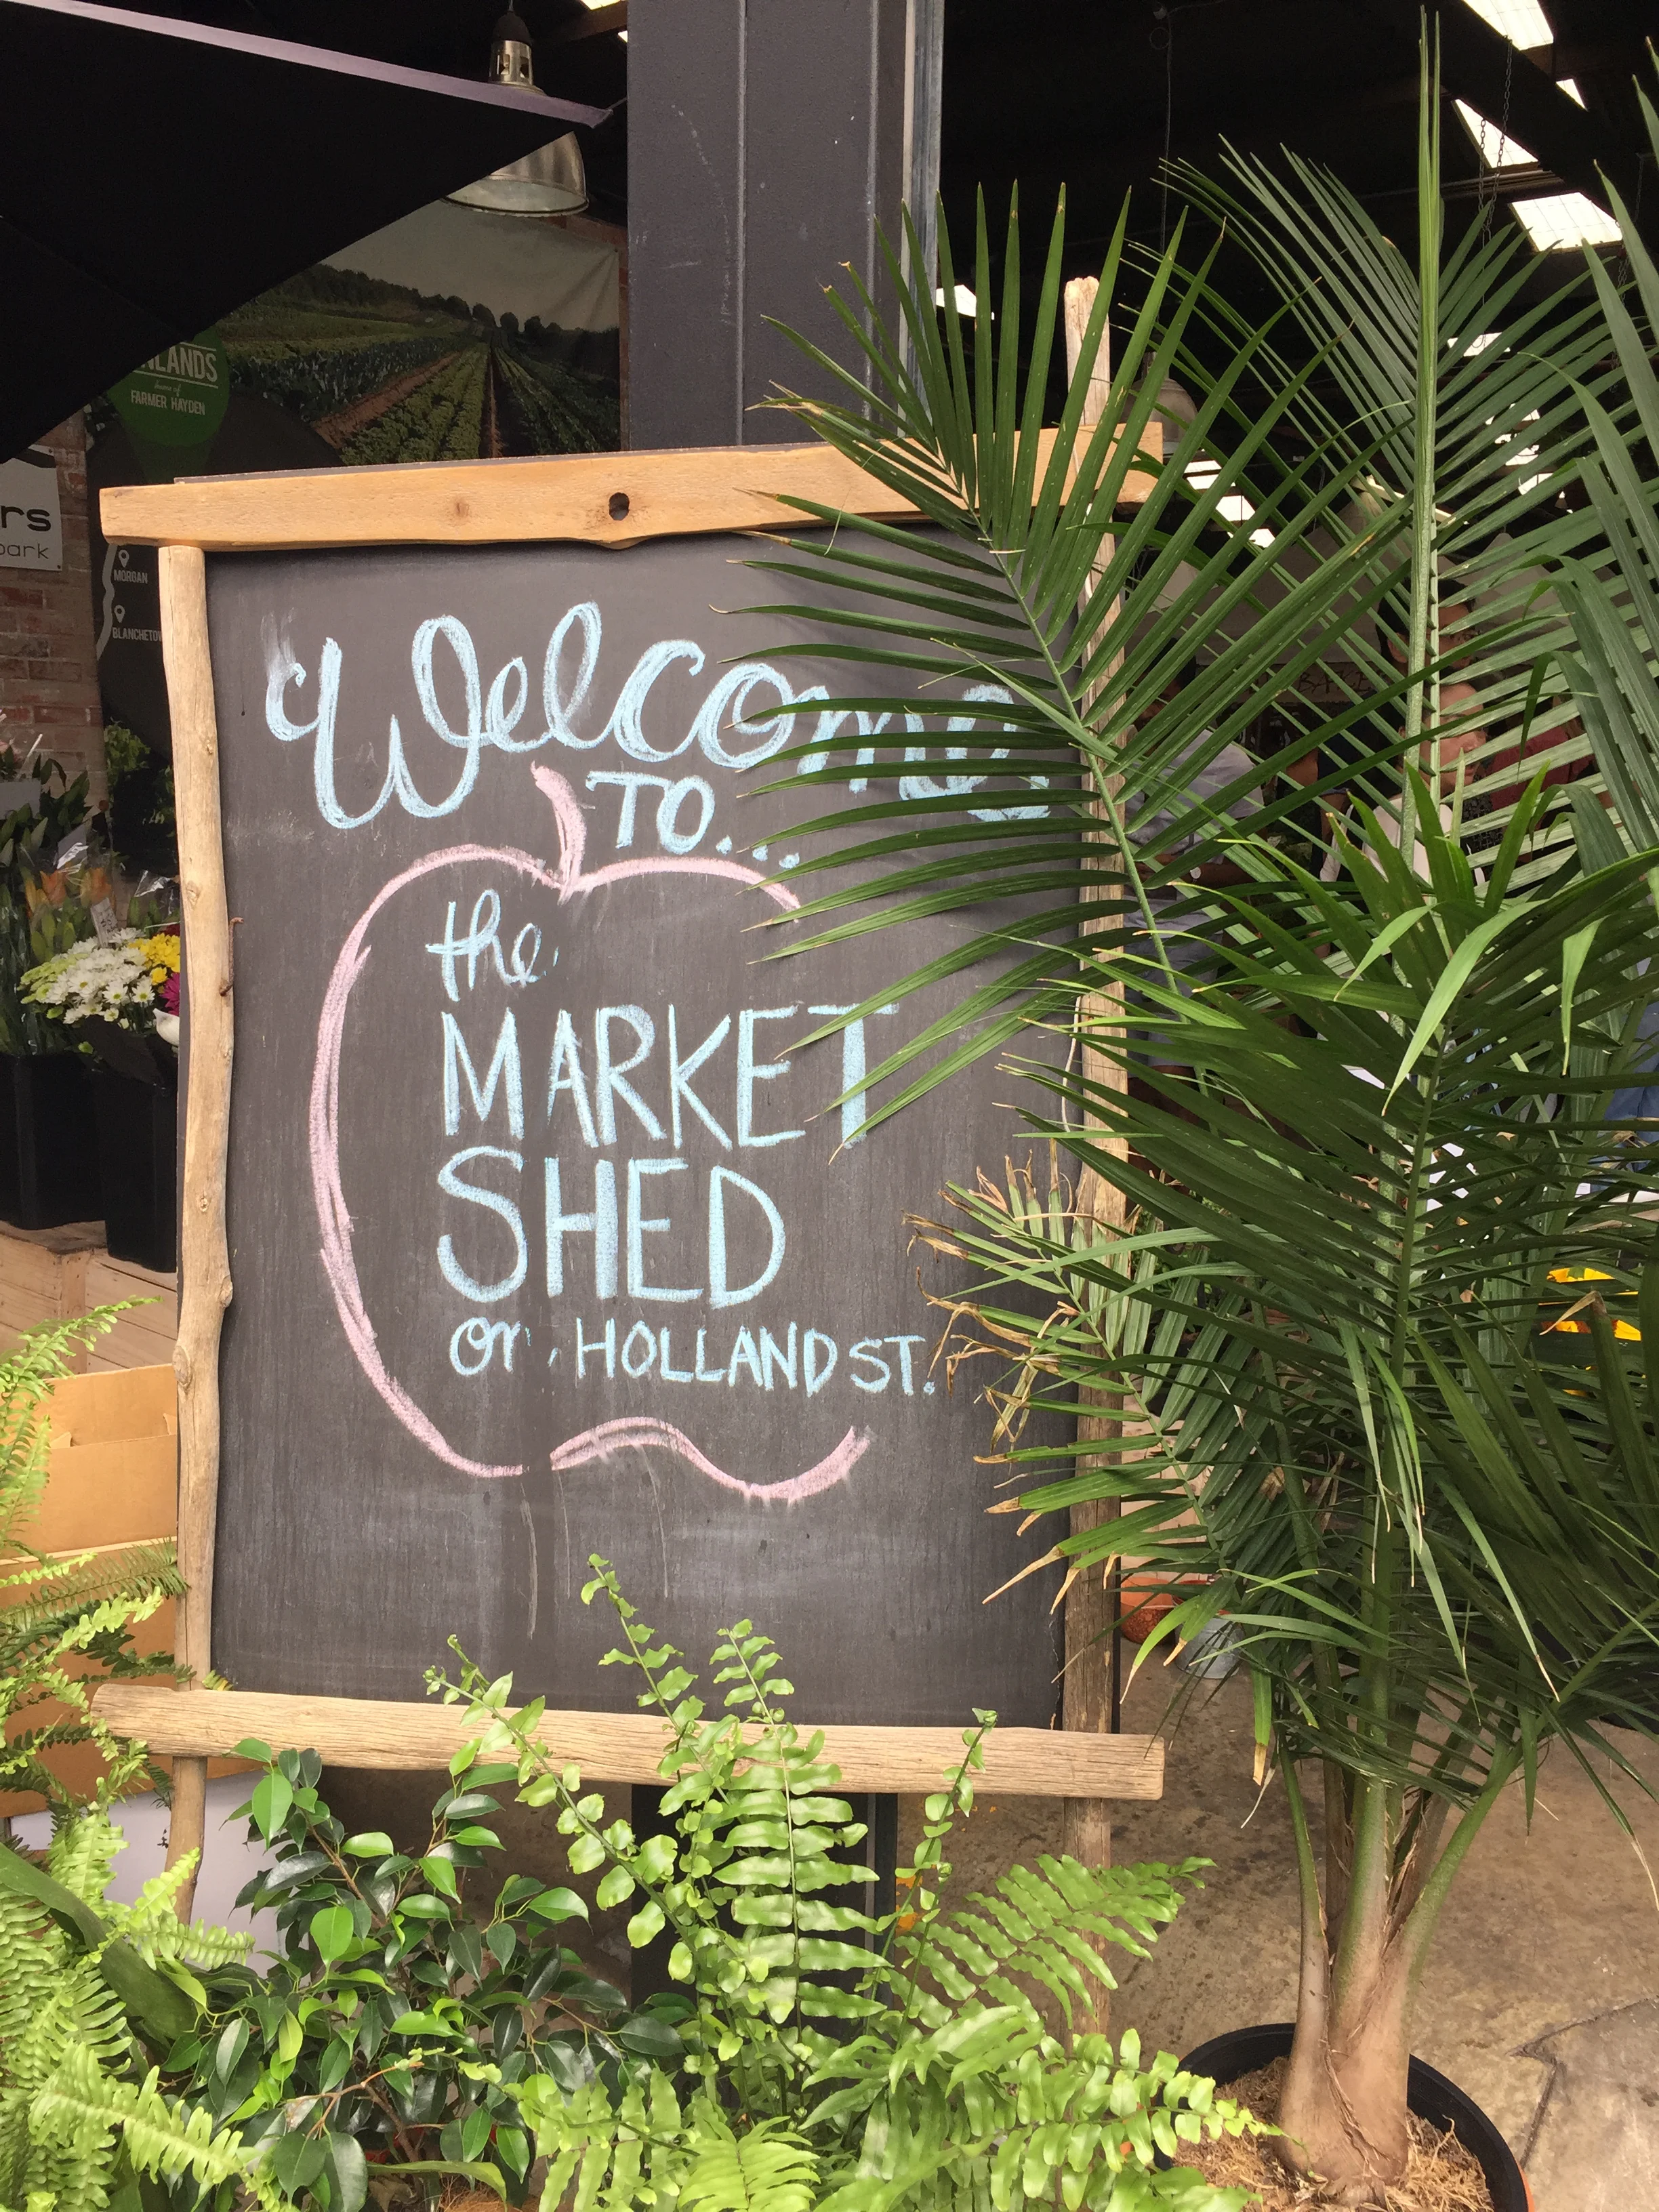 NLANDS
home of
FARMER HAYDEN
rs
park
MORGAN
BLANCHETOW
Welcome
TO...
the
MARKET
SHED
on HOLLAND ST.